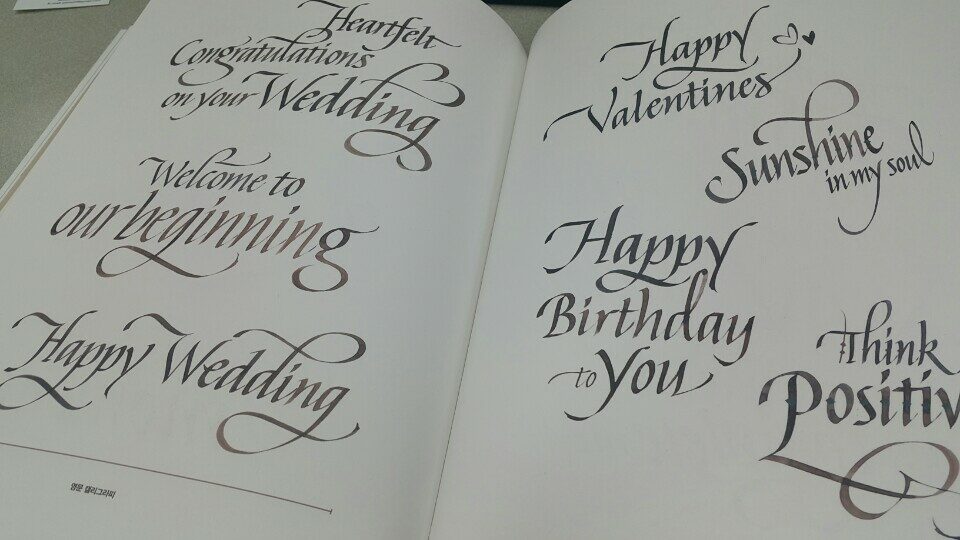 Heartfelt
Congratulations
on your Wedding
Welcome to
our beginning
Happy Wedding
영문 캘리그라피
Happy
Valentines
Sunshine
in my soul
Happy
Birthday
to You
Think
Positiv